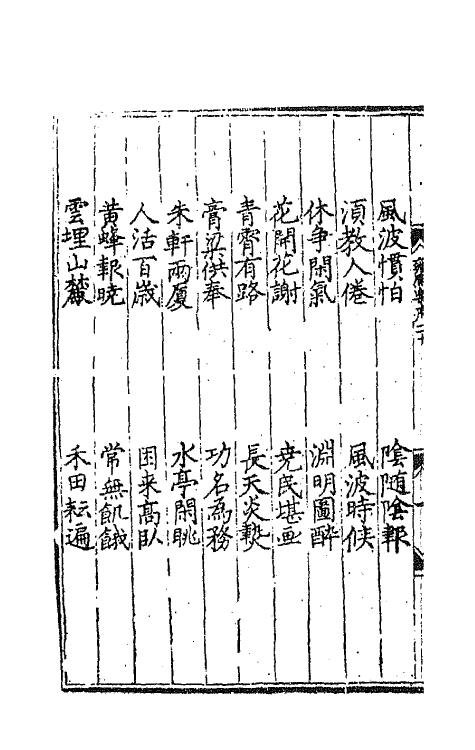 風波慣怕　陰随陰報
湏教人倦　風波時候
休争閑氣　淵明圖醉
花開花謝　堯民堪画
青霄有路　長天炎熱
膏粱供奉　功名為務
朱軒兩厦　水亭閑眺
人活百歲　困来髙臥
黄蜂報曉　常無飢餓
雲埋山麓　禾田耘遍